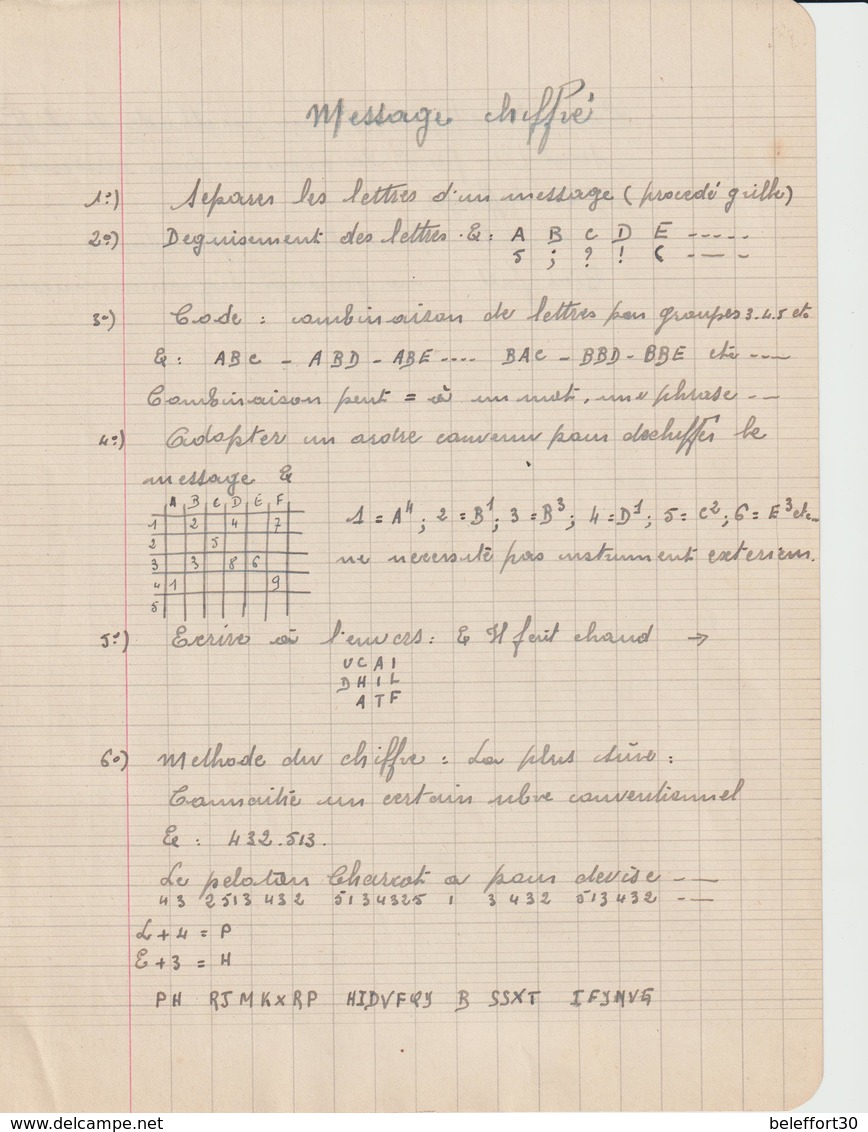 Message chiffré
1º) Separer les lettres d'un message (procedé grille)
2º) Deguisement des lettres. Ex: A B C D E -----
5 ; ? ! ( -----
3º) Code : combinaison de lettres par groupes 3.4.5 etc
Ex: ABC - ABD - ABE .... BAC - BBD - BBE etc ---
Combinaison peut = à un mot, une phrase --
4º) Adopter un ordre convenu pour dechiffrer le
message Ex
A B C D E F
1 2 4 7
2 5
3 3 8 6
4 1 9
5
1 = A⁴ ; 2 = B¹ ; 3 = B³ ; 4 = D¹ ; 5 = C² ; 6 = E³ etc...
ne necessite pas instrument exterieur.
5º) Ecrire à l'envers: Ex Il fait chaud →
UCAI
DHIL
ATF
6º) Methode du chiffre : La plus sûre :
Connaitre un certain nbre conventionnel
Ex : 432.513.
Le peloton Charcot a pour devise ---
43 2513 432 5134325 1 3 432 513432 --
L + 4 = P
E + 3 = H
PH RJMKXRP HIDVFQY B SSXT IFJMVG
www.delcampe.net
beleffort30